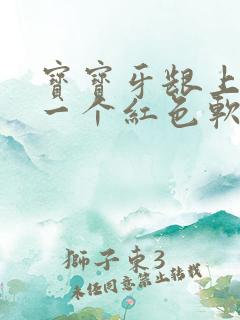 寶寶牙齦上
一个紅色軟
獅子東3
未经同意禁止转载